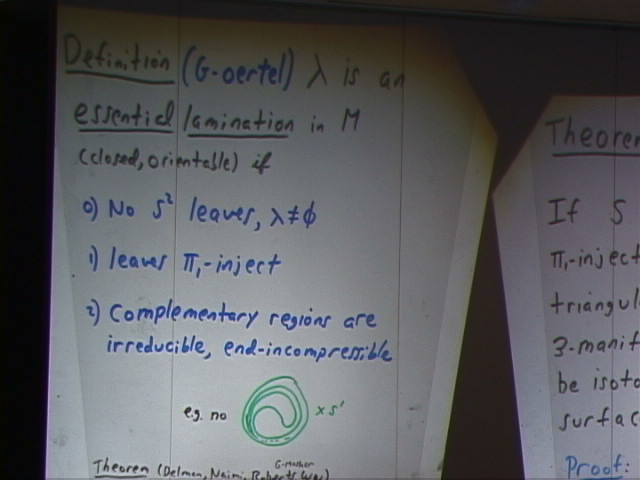 Definition (G-oertel) λ is an
essential lamination in M
(closed, orientable) if
0) No S² leaves, λ≠φ
1) leaves π₁-inject
2) Complementary regions are
irreducible, end-incompressible
e.g. no × S¹
Theorem (Delman, Naimi, Roberts,
Theorem
If S
π₁-inject
triangul
3-manif
be isoto
surfac
Proof: